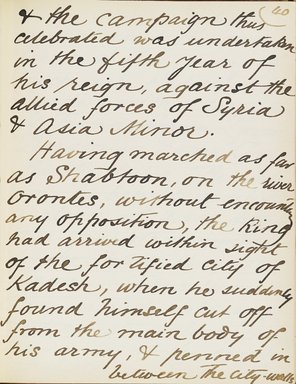 40
& the campaign thus
celebrated was undertaken
in the fifth year of
his reign, against the
allied forces of Syria
& Asia Minor.
Having marched as far
as Shabtoon, on the river
Orontes, without encountg
any opposition, the King
had arrived within sight
of the fortified city of
Kadesh, when he suddenly
found himself cut off
from the main body of
his army, & penned in
between the city-walls